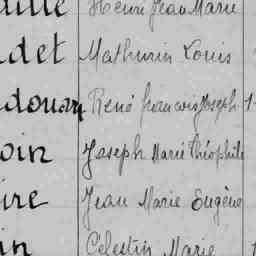 aille Henri Jean Marie
det Mathurin Louis
douard René françois Joseph 1
oin Joseph Marie Théophile
ire Jean Marie Eugène
in Célestin Marie